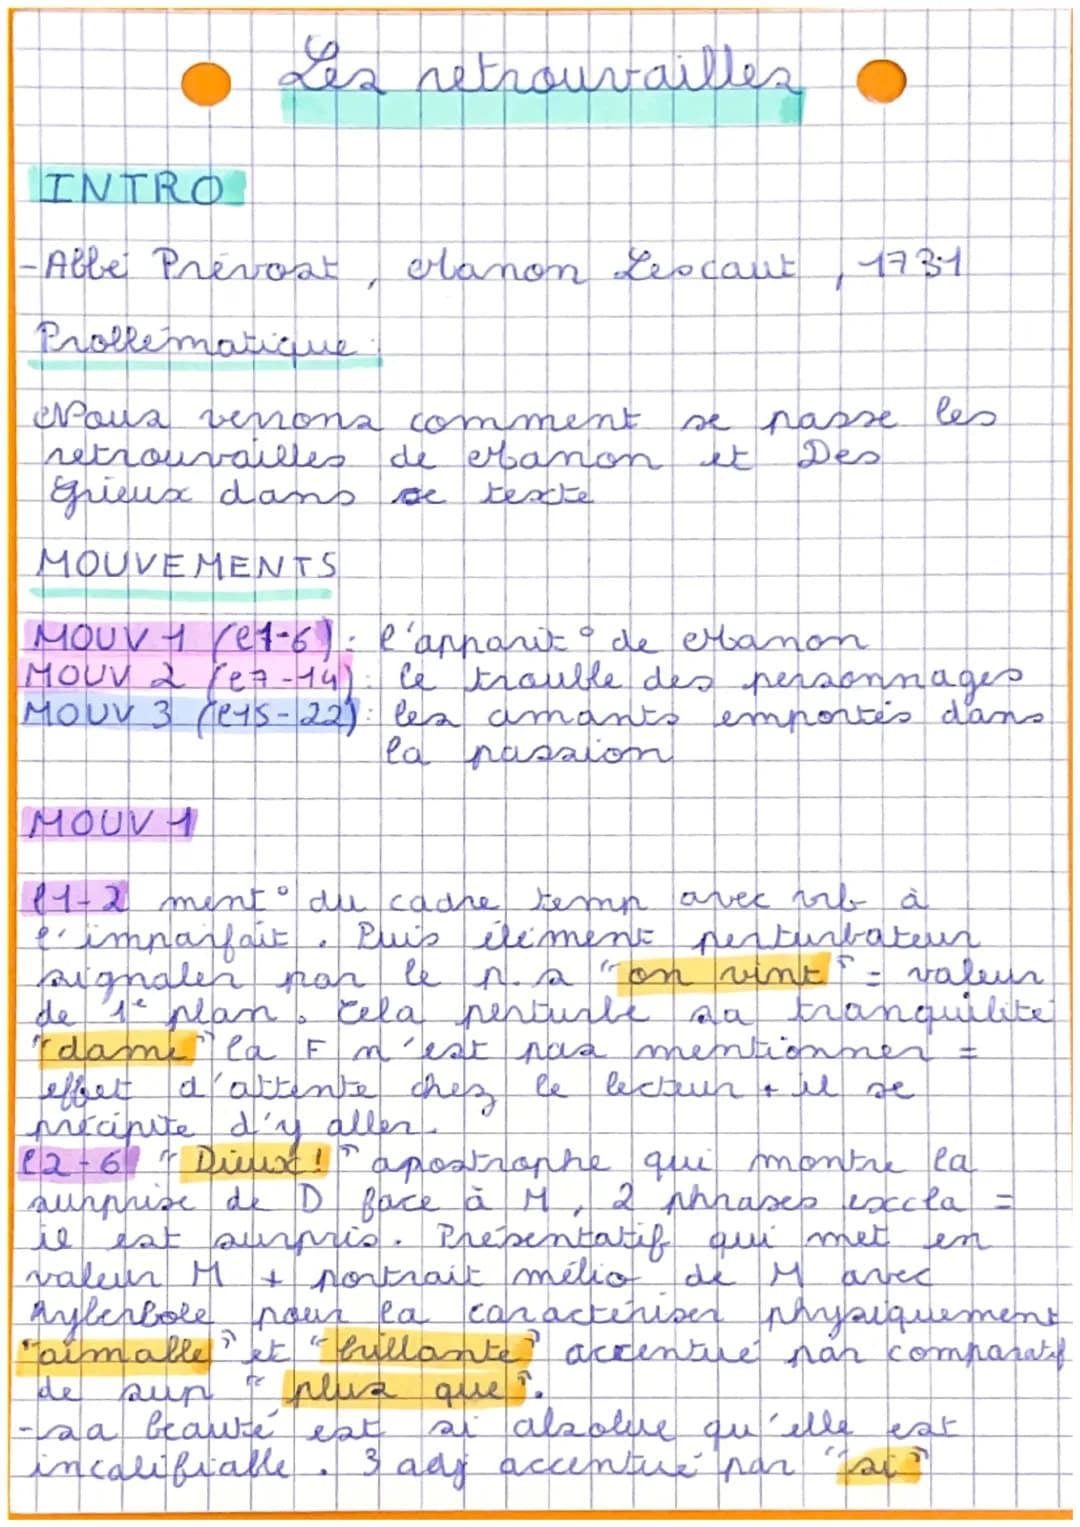 Les retrouvailles
INTRO
-Abbé Prévost, Manon Lescaut, 1731
Problématique :
Nous verrons comment se passe les
retrouvailles de Manon et Des
Grieux dans ce texte
MOUVEMENTS
MOUV 1 (l1-6) : l'apparit° de Manon
MOUV 2 (l7-14) : le trouble des personnages
MOUV 3 (l15-22) : les amants emportés dans
la passion
MOUV 1
l1-2 ment° du cadre temp avec vrb à
l'imparfait. Puis élément perturbateur
signaler par le p.s "on vint" = valeur
de 1e plan. Cela perturbe sa tranquilité
"dame" la F n'est pas mentionner =
effet d'attente chez le lecteur + il se
précipite d'y aller.
l2-6 "Dieux !" apostrophe qui montre la
surprise de D face à M, 2 phrases excla =
il est surpris. Présentatif qui met en
valeur M + portrait mélio de M avec
hyberbole pour la caractériser physiquement
"aimable" et "brillante" accentué par comparatif
de sup "plus que".
-sa beauté est si absolue qu'elle est
incalifiable. 3 adj accentué par "si"